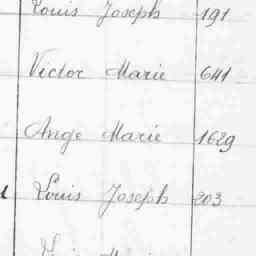 Louis Joseph 191
Victor Marie 641
Ange Marie 1629
Louis Joseph 203